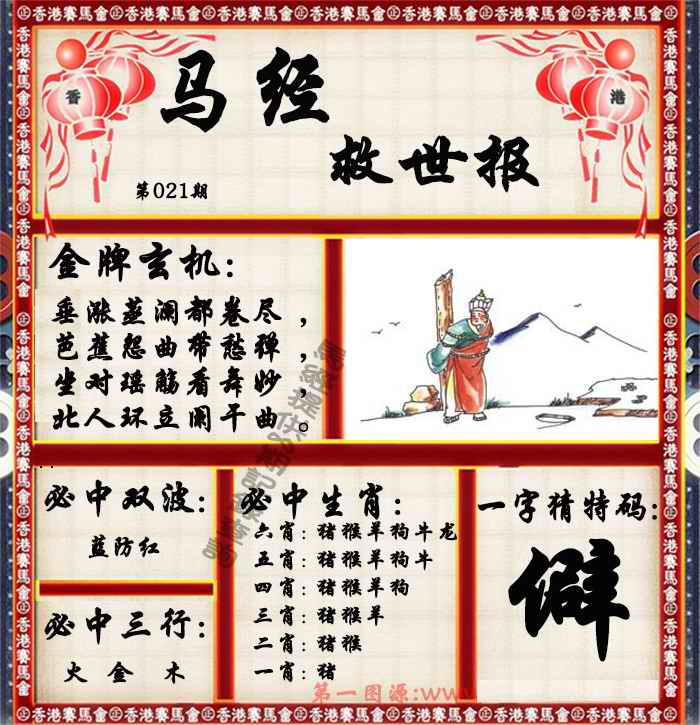 香港賽馬會
香
港
马经
救世报
第021期
金牌玄机:
垂涨蒸澜都卷尽,
芭蕉怨曲带愁弹,
坐对瑶觞看舞妙,
北人环立阑干曲。
必中双波:
蓝防红
必中三行:
火 金 木
必中生肖:
六肖:猪猴羊狗牛龙
五肖:猪猴羊狗牛
四肖:猪猴羊狗
三肖:猪猴羊
二肖:猪猴
一肖:猪
一字猜特码:
僻
第一图源:www